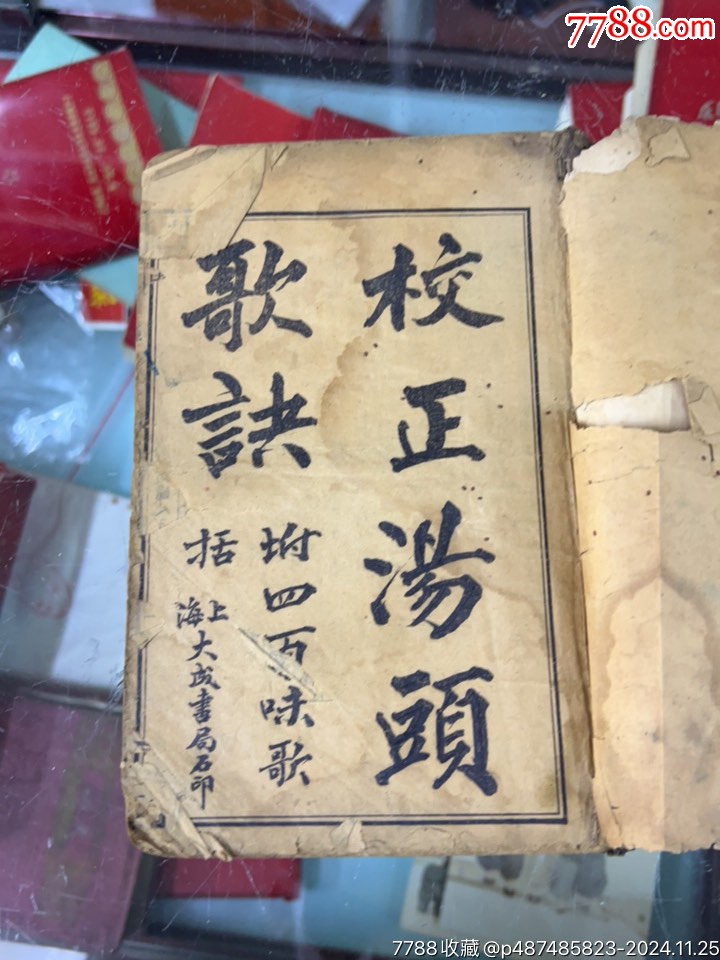 7788.com
校正湯頭
歌訣
坿四百味歌
括
上海大成書局石印
7788收藏@p487485823-2024.11.25